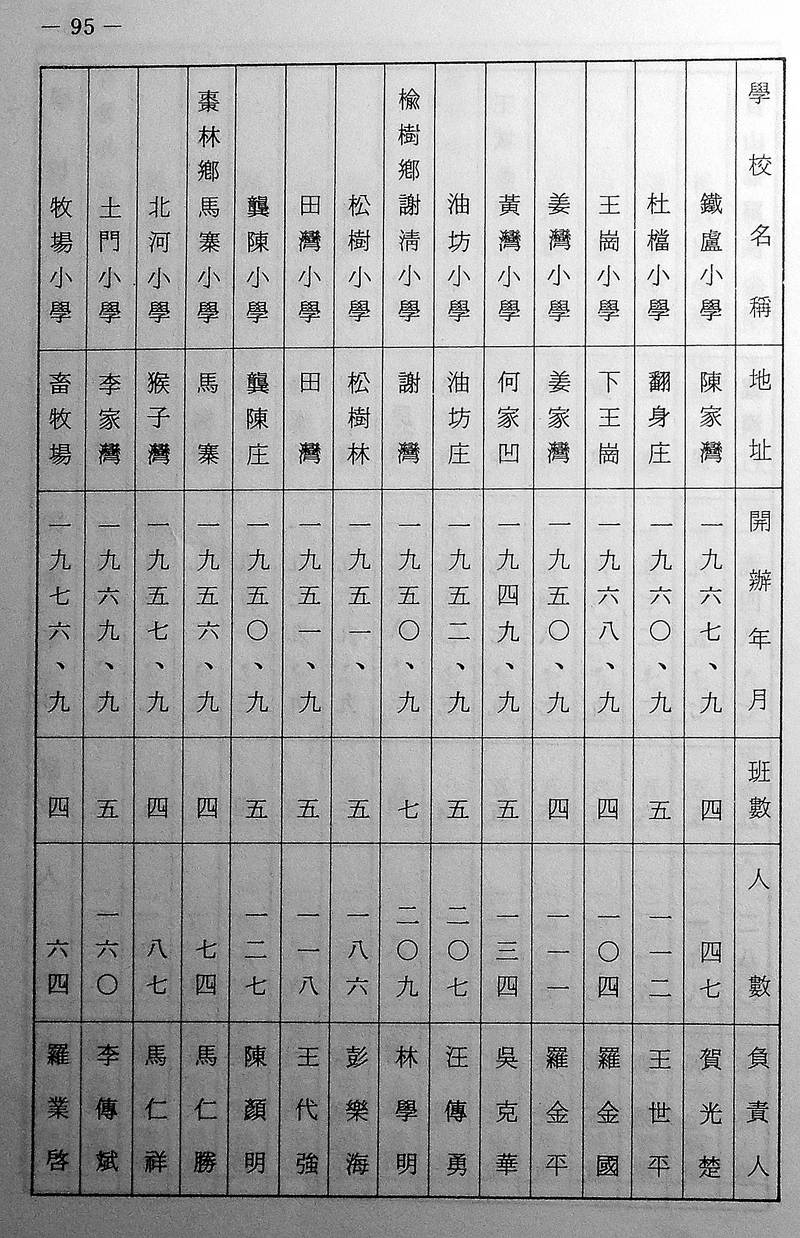 — 95 —
學校名稱 地址 開辦年月 班數 人數 負責人
鐵盧小學 陳家灣 一九六七、九 四 四七 賀光楚
杜檔小學 翻身庄 一九六〇、九 五 一一二 王世平
王崗小學 下王崗 一九六八、九 四 一〇四 羅金國
姜灣小學 姜家灣 一九五〇、九 四 一一一 羅金平
黃灣小學 何家凹 一九四九、九 五 一三四 吳克華
油坊小學 油坊庄 一九五二、九 五 二〇七 汪傳勇
榆樹鄉謝清小學 謝灣 一九五〇、九 七 二〇九 林學明
松樹小學 松樹林 一九五一、九 五 一八六 彭樂海
田灣小學 田灣 一九五一、九 五 一一八 王代強
龔陳小學 龔陳庄 一九五〇、九 五 一二七 陳顏明
棗林鄉馬寨小學 馬寨 一九五六、九 四 七四 馬仁勝
北河小學 猴子灣 一九五七、九 四 八七 馬仁祥
土門小學 李家灣 一九六九、九 五 一六〇 李傳斌
牧場小學 畜牧場 一九七六、九 四 六四 羅業啓